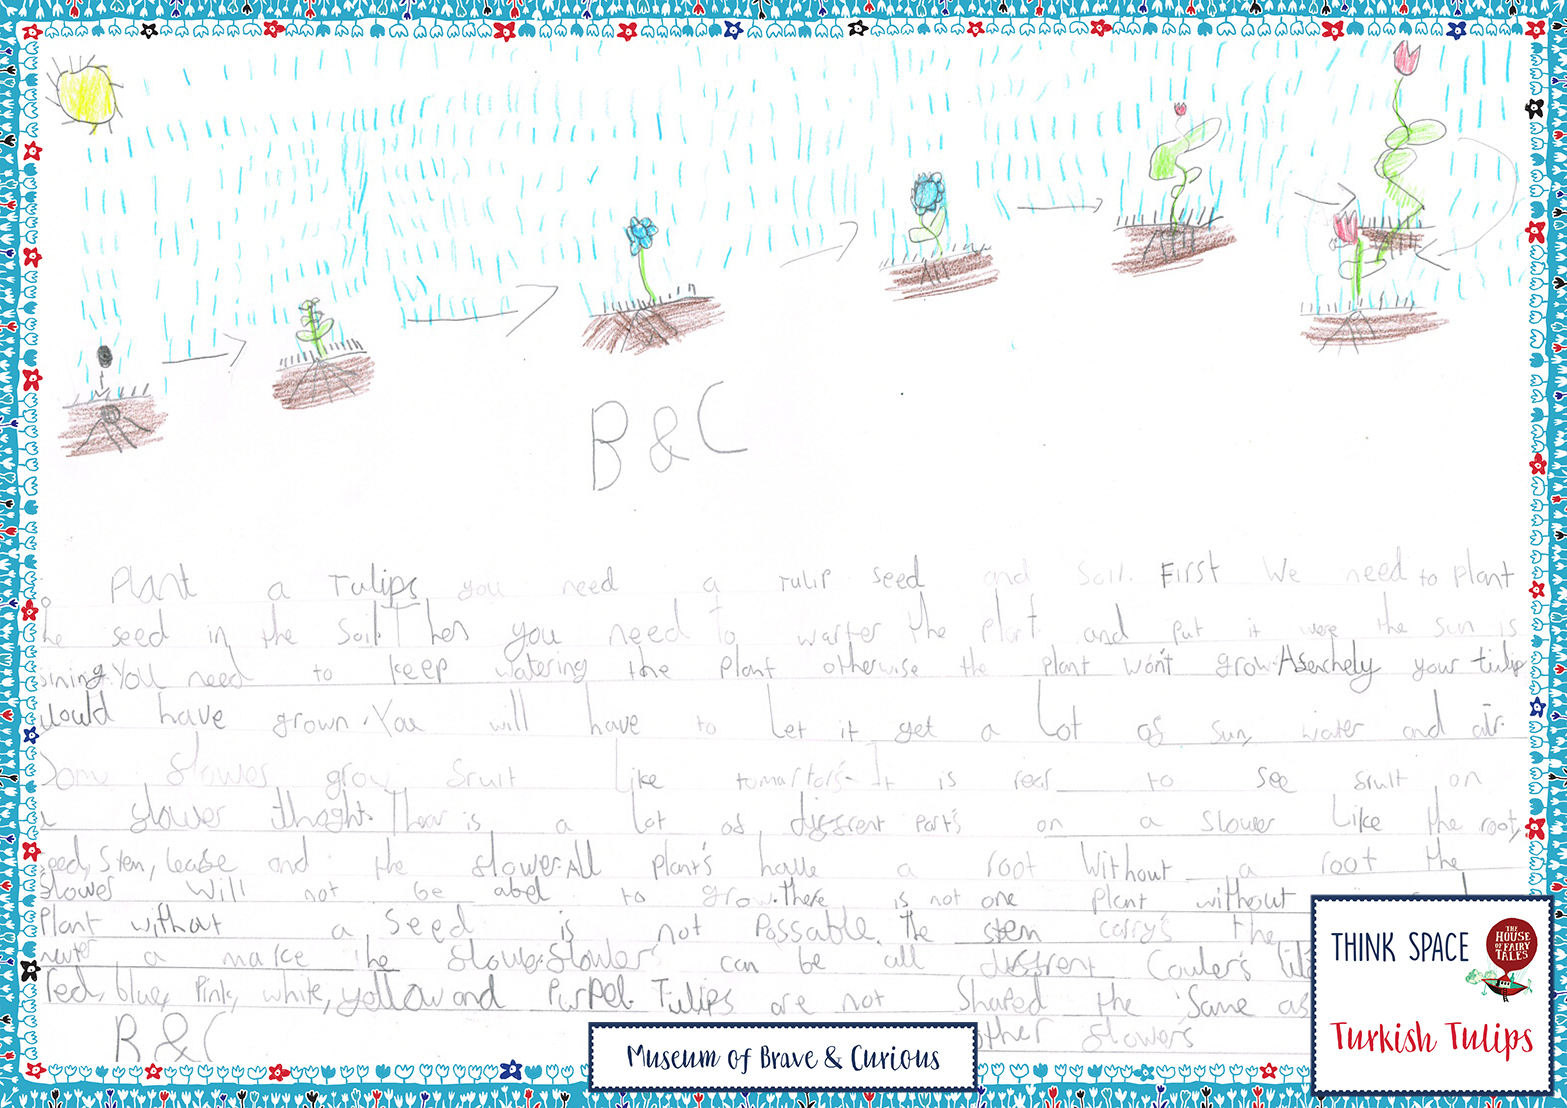 B & C
Plant a Tulips you need a Tulip seed and Soil. First We need to plant
he seed in the Soil. Then you need to warter the plant and put it were the sun is
ining. You need to keep watering the plant otherwise the plant won't grow. Aserchely your tulip
would have grown. You will have to let it get a Lot of sun, water and air.
Some flower grow fruit Like tomartors. It is rear to see fruit on
a flower thoght. Thear is a Lot of diffrent part's on a flower Like the root,
eed, Stem, lease and the flower. All plant's have a root Without a root the
flower Will not be abel to grow. there is not one plant without
Plant without a Seed is not Possable. The stem carry's the
a marke the flower. flower's can be all diffrent Couler's
red, blue, Pink, white, yellow and PurPel. Tulips are not Shaped the Same as
other flowers
B & C
THINK SPACE
THE HOUSE OF FAIRY TALES
Turkish Tulips
Museum of Brave & Curious